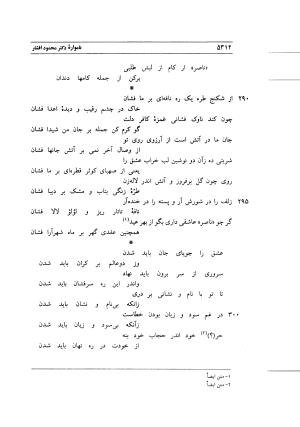 ۵۳۱۲
نامواره دکتر محمود افشار
«ناصر» ار کام از لبش طلبی
برکن از جمله کامها دندان
*
۲۹۰ از شکنج طره یک ره نافه‌ای بر ما فشان
خاک در چشم رقیب و دیده اعدا فشان
چون کند ناوک فشانی غمزهٔ کافر دلت
گو کرم کن جمله بر جان من شیدا فشان
جان ما در آتش است از آرزوی روی تو
از وصال آخر نمی بر آتش جانها فشان
شربتی ده زآن دو نوشین لب خراب عشق را
یعنی از صهبای کوثر قطره‌ای بر ما فشان
روی چون گل برفروز و آتش اندر لاله‌زن
طرّهٔ زنگی بتاب و مشک بر دیبا فشان
۲۹۵ زلف را در شورش آر و پسته را در خنده‌آر
نافهٔ تاتار ریز و لؤلؤ لالا فشان
گر چو «ناصر» عاشقی داری بگو از بهر عید(۱)
همچنین عقدی گهر بر ماه شهرآرا فشان
*
عشق را جویای جان باید شدن
وز دوعالم بر کران باید شدن
سروری از سر برون باید نهاد
واندر این ره سرفشان باید شدن
تا تو با نام و نشانی بر دری
زانکه بی‌نام و نشان باید شدن
۳۰۰ در غم سود و زیان بودن خطاست
زآنکه بی‌سود و زیان باید شدن
حر(؟)(۲) خود اندر حجاب خود بنه
از خودت در ره نهان باید شدن
۱- متن ایضاً
۲- متن ایضاً